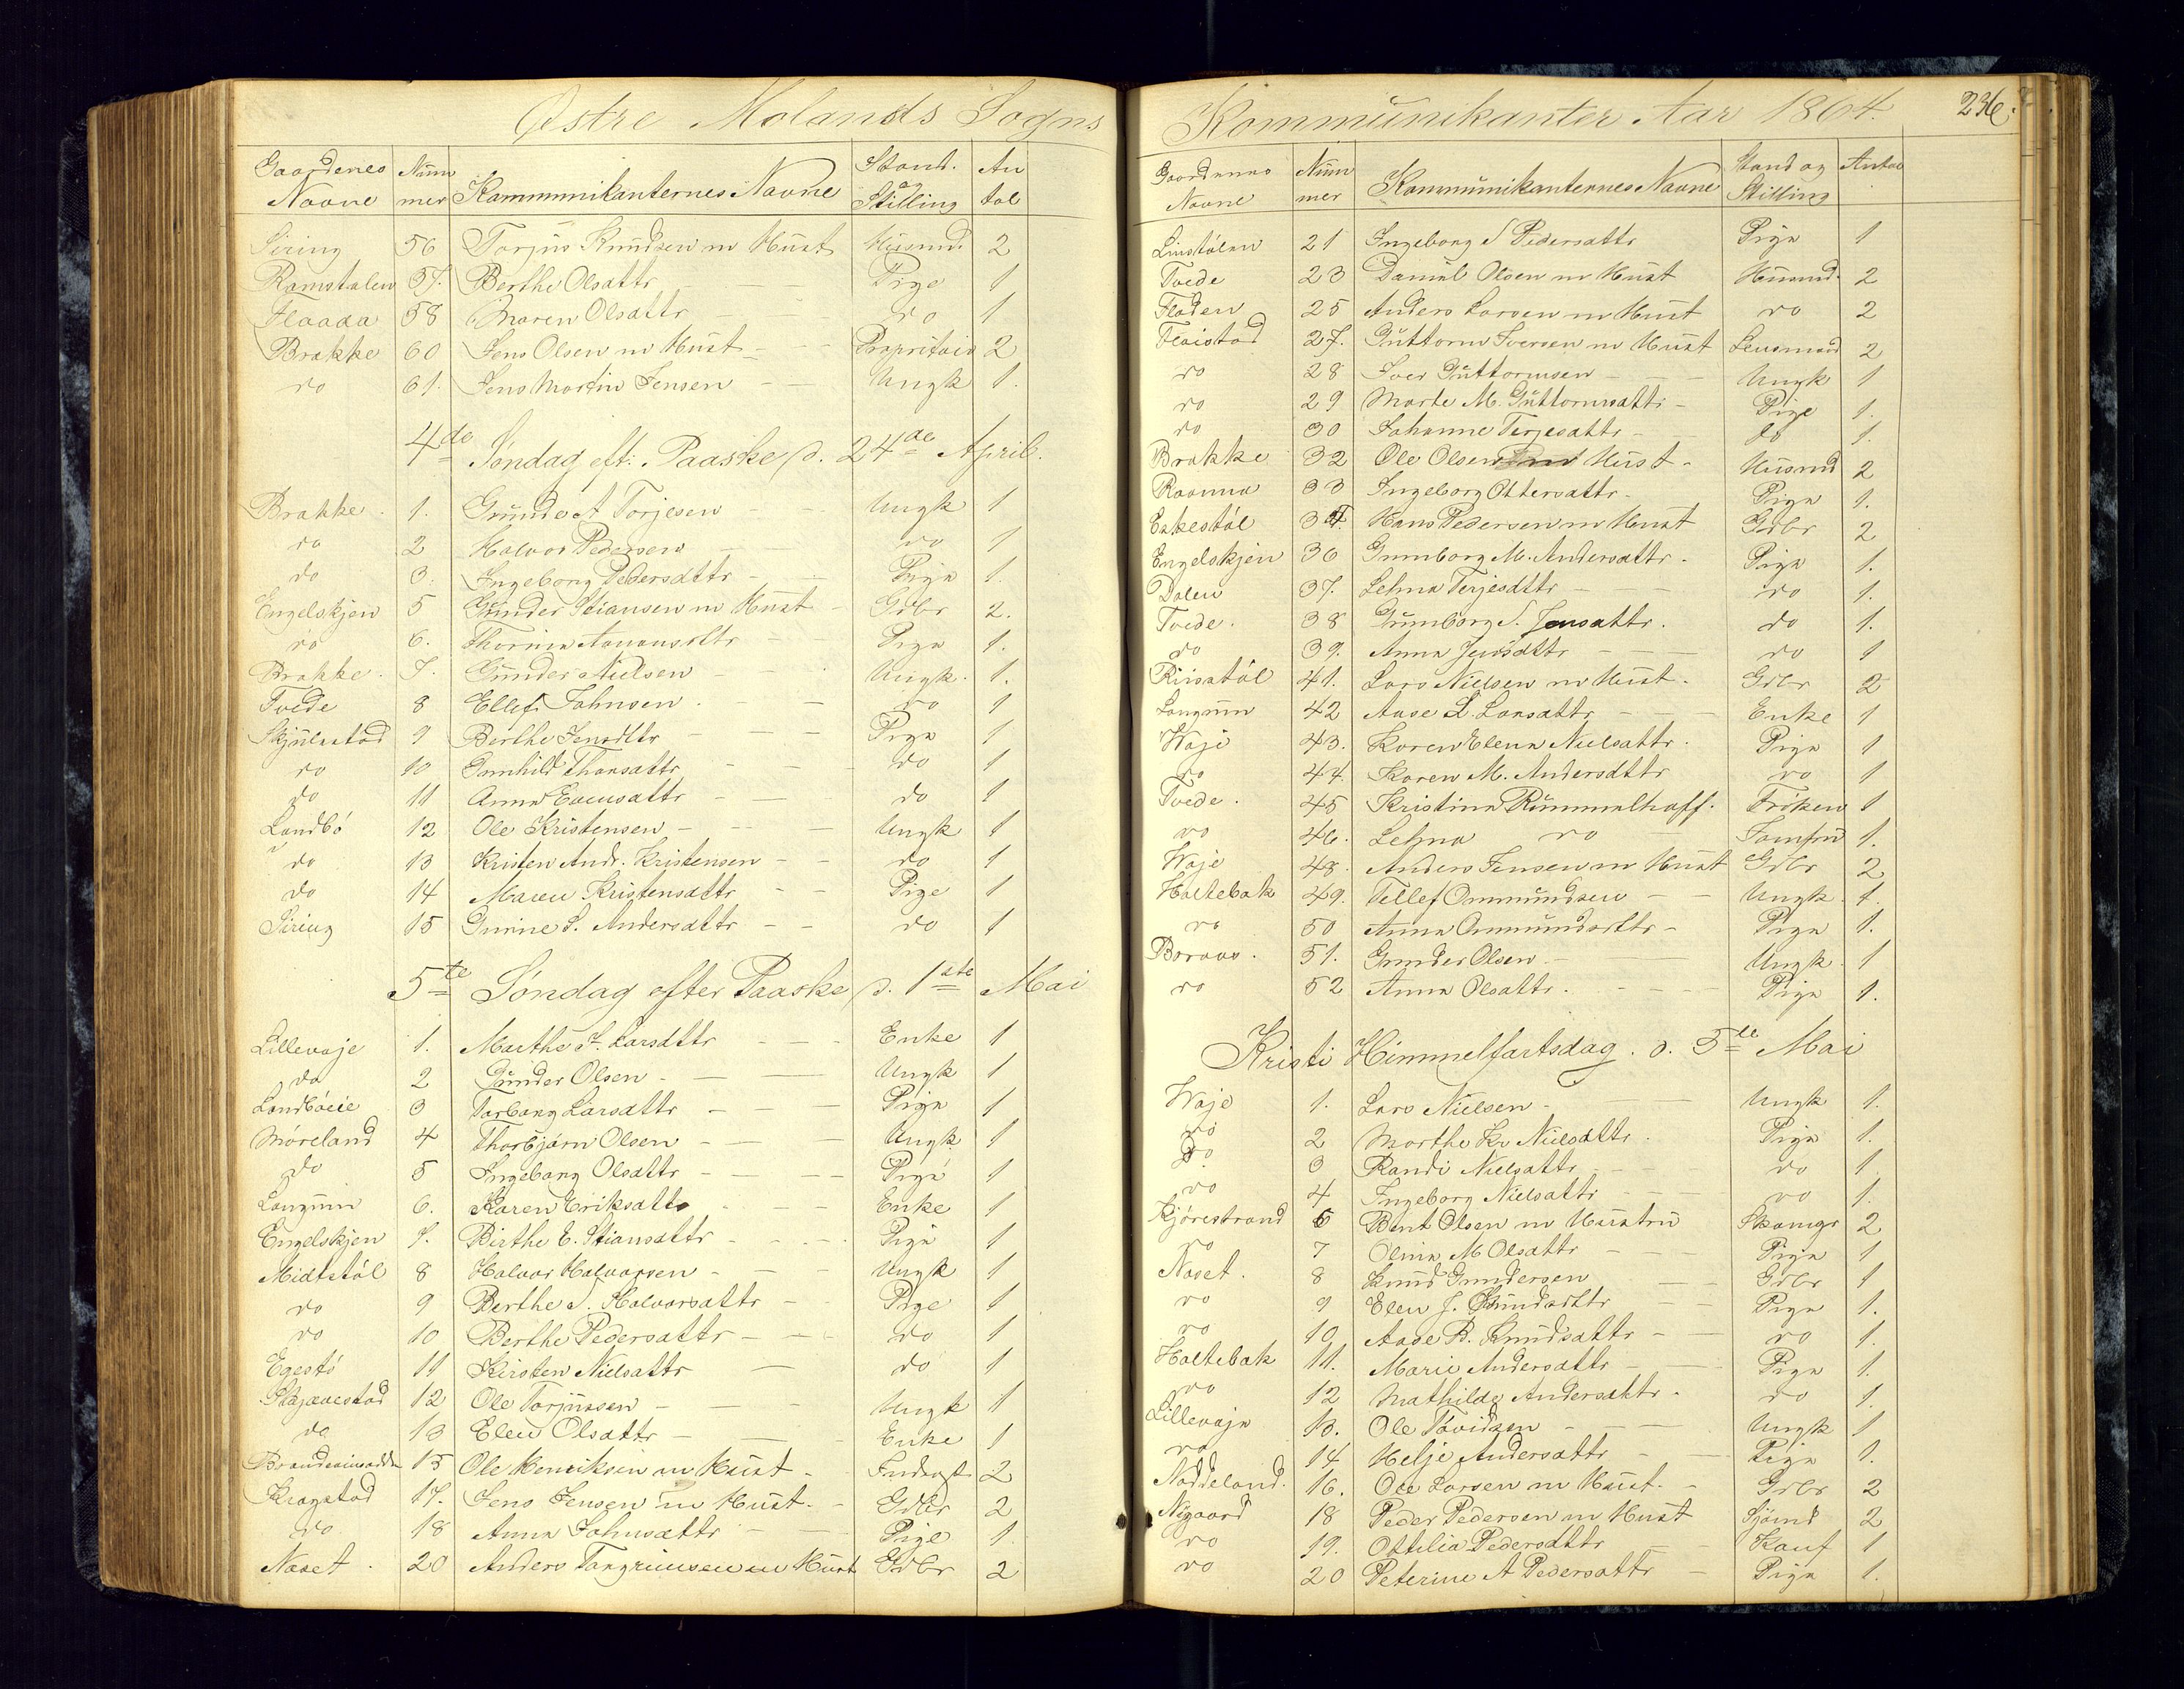 Østre Molands Sogns
Gaardenes Navne Nummer Kommunikanternes Navne Stand. & Stilling Antal
Siring 56 Torjus Knudsen m Hust Husmd. 2
Ramstalen 57. Berthe Olsdttr Pige 1
Flaada 58 Maren Olsdttr do 1
Brakke 60 Jens Olsen m Hust Propritair 2
do 61. Jens Martin Jensen Ungk 1.
4de Søndag eft: Paaske d. 24de April.
Brakke. 1. Gunder A Torjesen Ungk 1
do 2 Halvor Pedersen do 1
do 3. Ingeborg Pedersdttr Pige 1.
Engelskjøn 5 Gunder Stiansen m Hust Grdbr 2.
do 6. Thorine Aanonsdttr Pige 1.
Brakke. 7. Gunder Nielsen Ungk. 1.
Tvede 8 Ellef Johnsen do 1
Skjulestad 9 Berthe Jensdttr Pige 1
do 10 Gunhild Thorsdttr do 1
do 11 Anna Evensdttr do 1
Landbö 12 Ole Kristensen Ungk 1
do 13 Kristen Andr. Kristensen do 1
do 14 Maren Kristensdttr Pige 1
Siring 15 Gurine S. Andersdttr do 1
5te Søndag efter Paaske d. 1ste Mai
Lillevaje 1. Marthe T. Larsdttr Enke 1
do 2 Gunder Olsen Ungk 1
Landböeie 3 Torborg Larsdttr Pige 1
Möreland 4 Thorbjørn Olsen Ungk 1
do 5 Ingeborg Olsdttr Pige 1
Langum 6. Karen Eriksdttr Enke 1
Engelskjen 7. Birthe E. Stiansdttr Pige 1
Midtstöl 8 Halvor Halvorsen Ungk 1
do 9 Berthe S. Halvorsdttr Pige 1
do 10 Berthe Pedersdttr do 1
Egestö 11 Kirsten Nielsdttr do 1
Skjævestad 12 Ole Torjussen Ungk 1
do 13 Elen Olsdttr Enke 1
15 Ole Henriksen m Hust Inderst 2
Kragstad 17. Jens Jensen m Hust. Grdbr 2
do 18 Anna Johnsdttr Pige 1
Naset. 20 Anders Tangrimsen m Hust Grdbr 2
Kommunikanter Aar 1864. 236.
Gaardenes Navne Nummer Kommunikanternes Navne Stand og Stilling Antal
Linstölen 21 Ingeborg S Pedersdttr Pige 1
Tvede 23 Daniel Olsen m Hust Husmd. 2
Fladen 25 Anders Larsen m Hust do 2
Flaistad 27. Guttorm Iversen m Hust Lensmand 2
do 28 Iver Guttormsen Ungk 1
do 29 Marte M. Guttormsdttr Pige 1.
do 30 Johanne Terjesdttr do 1.
Brakke 32 Ole Olsen m Hust Husmd 2
Raanna 33 Ingeborg Ottersdttr Pige 1.
Eskestöl 35. Hans Pedersen m Hust Grdbr 2
Engelskjön 36 Gunborg M. Andersdttr. Pige 1.
Dalen 37. Lehna Terjesdttr do 1.
Tvede. 38 Gunborg S. Jensdttr. do 1.
do 39. Anna Jensdttr do 1
Riisstöl 41. Lars Nielsen m Hust. Grdbr 2
Langum 42 Aase L. Larsdttr Enke 1
Waje 43. Karen Elena Nielsdttr. Pige 1
do 44. Karen M. Andersdttr do 1
Tvede. 45 Kristina Rummelhoff. Fröken 1
do 46. Lehna do Jomfru 1.
Waje 48. Anders Jensen m Hust Grdbr 2
Holtebak 49. Tellef Ommundsen Ungk. 1.
do 50 Anna Ommundsdttr Pige 1.
Boraas. 51. Gunder Olsen Ungk. 1
do 52 Anna Olsdttr. Pige 1.
Kristi Himmelfartsdag. d. 5te Mai
Waje 1. Lars Nielsen Ungk 1.
do 2 Marthe Kr Nielsdttr. Pige 1.
do 3 Randi Nielsdttr do 1
do 4 Ingeborg Nielsdttr do 1.
Kjörestrand 6 Bent Olsen m Hustru Skomgr 2
do 7 Olina M Olsdttr Pige 1
Naset. 8 Knud Gundersen Grdbr 1
do 9 Elen J. Knudsdttr Pige 1.
do 10 Aase B. Knudsdttr do 1.
Holtebak 11. Marie Andersdttr Pige 1.
do 12 Mathilde Andersdttr. do 1.
Lillevaje 13. Ole Tövidsen Ungk 1
do 14 Helje Andersdttr Pige 1.
Naddeland. 16. Ole Larsen m Hust. Grdbr 2
Nygaard 18 Peder Pedersen m Hust Sjömd 2
do 19. Ottilia Pedersdttr Konf 1
do 20 Peterine A Pedersdttr Pige 1.